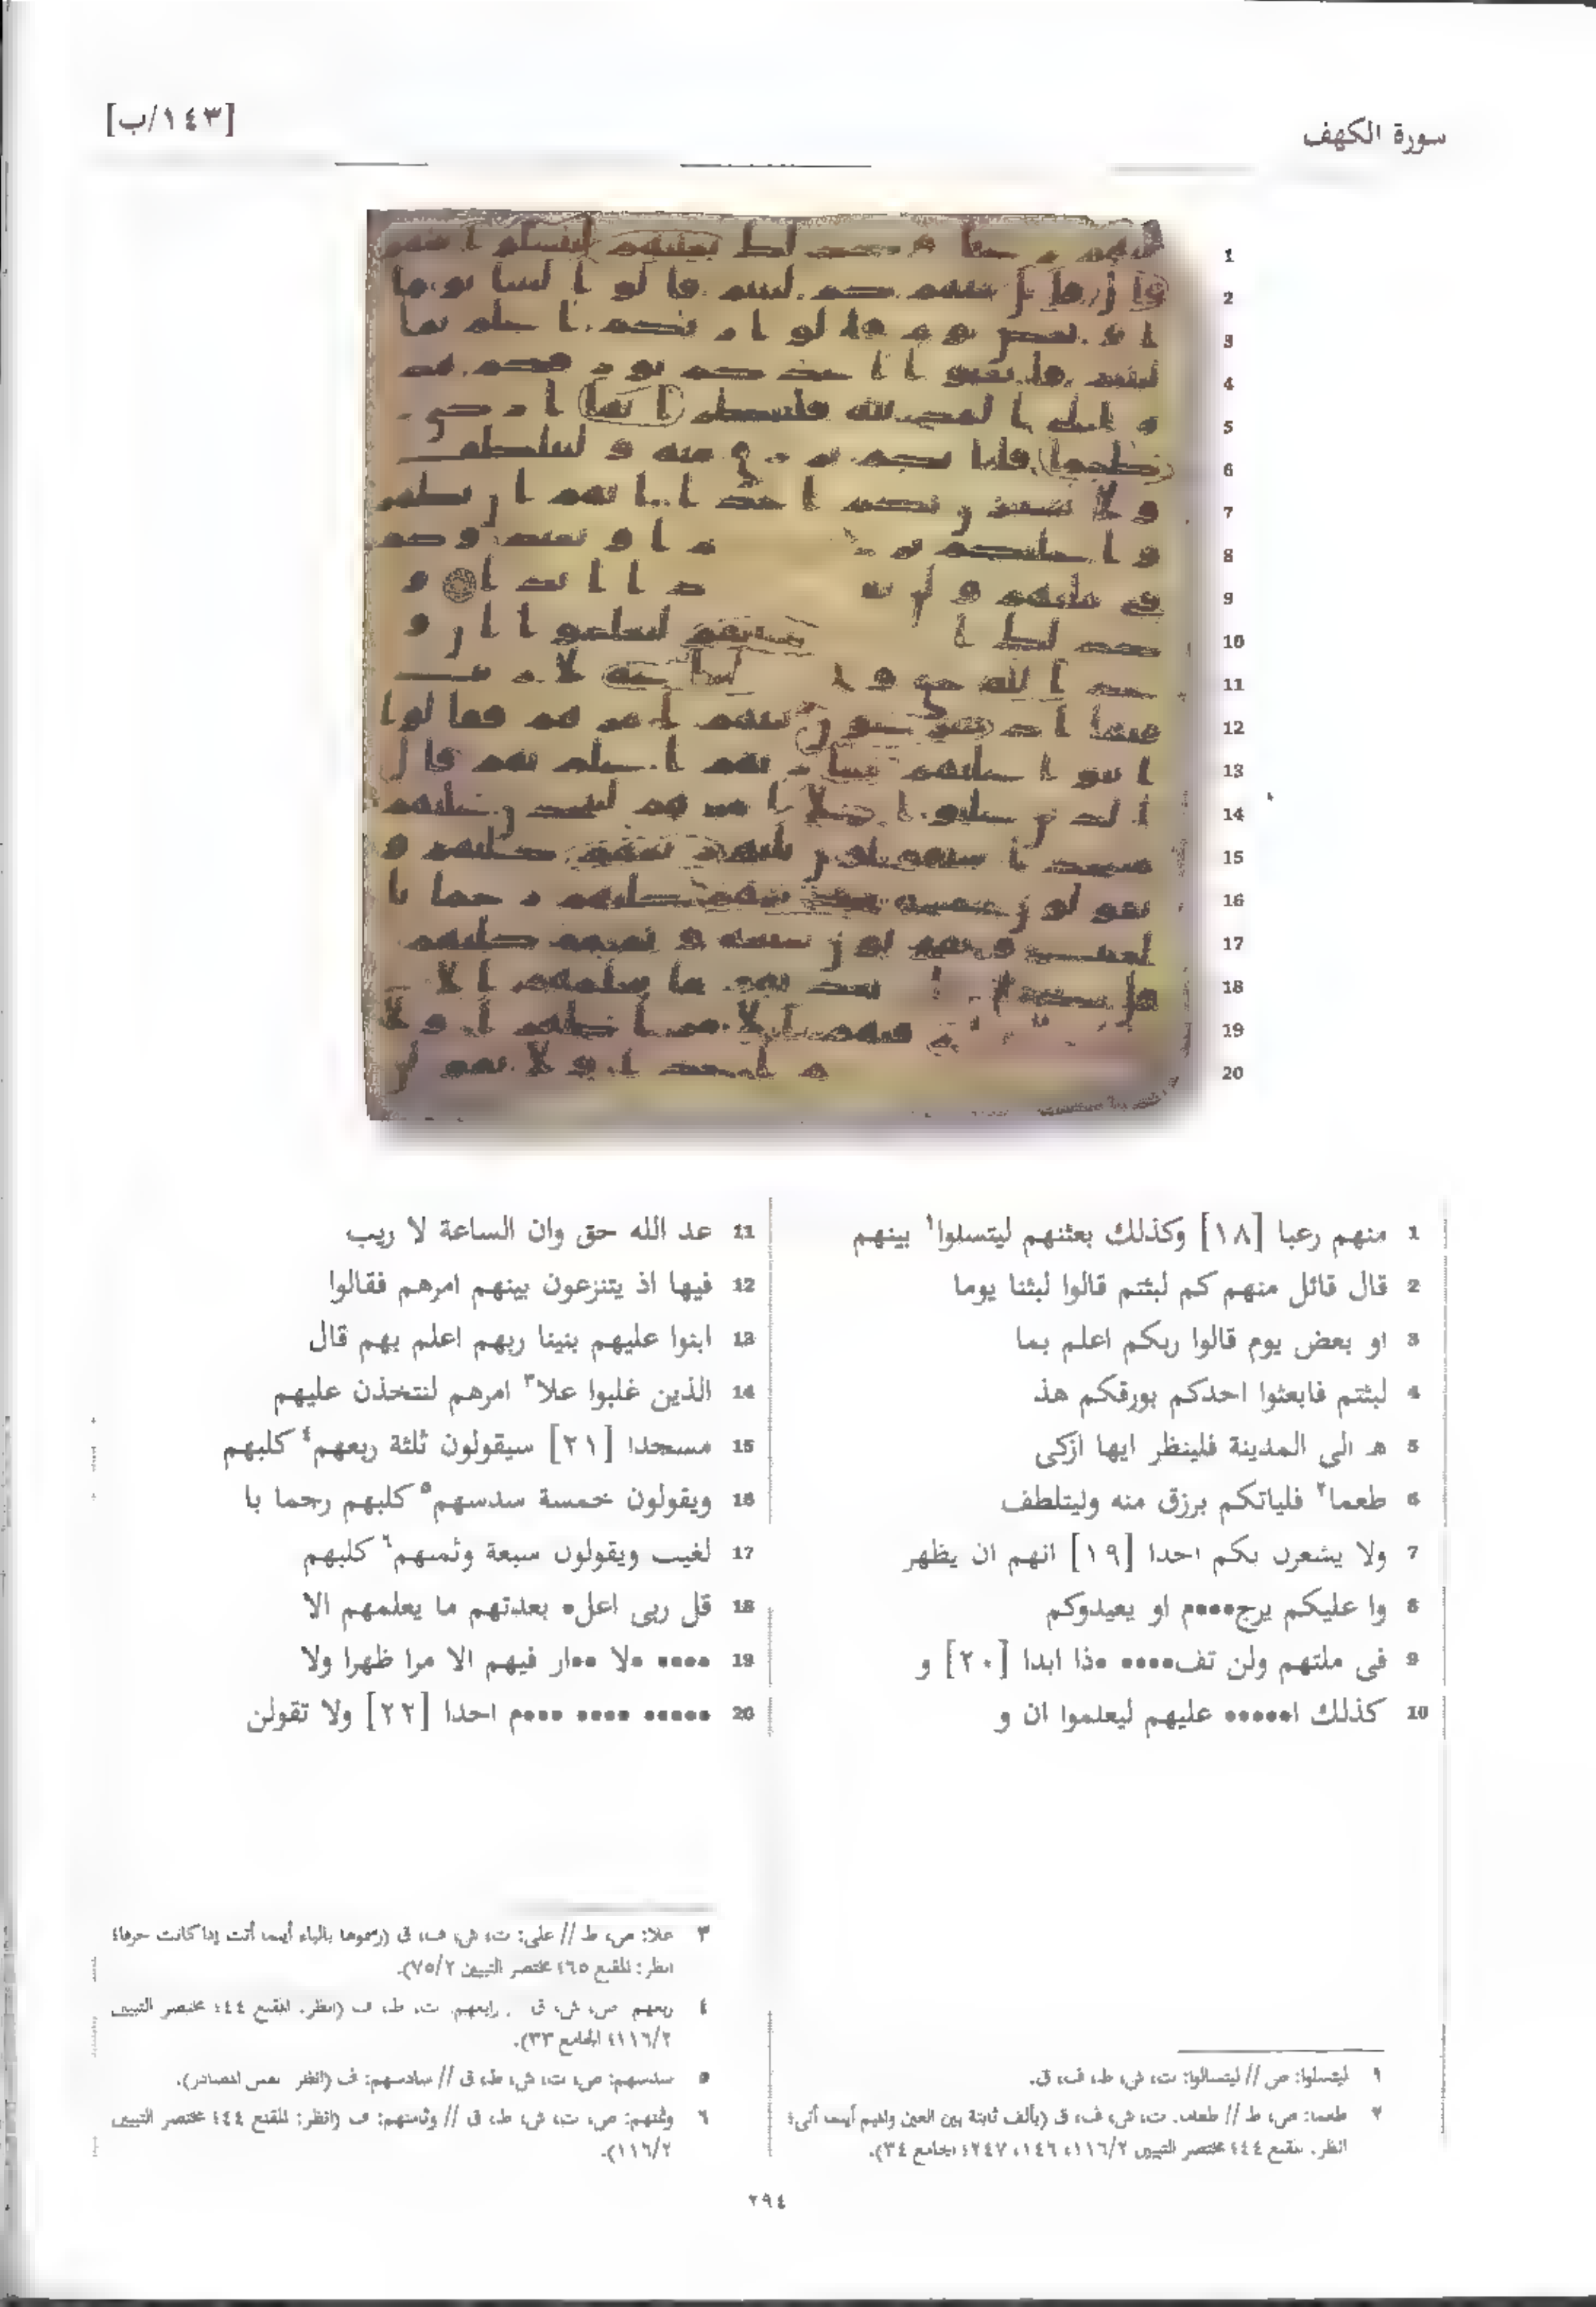 سورة الكهف
[١٤٣/ب]
1 منهم رعبا [١٨] وكذلك بعثنهم ليتسلوا١ بينهم
2 قال قائل منهم كم لبثتم قالوا لبثنا يوما
3 او بعض يوم قالوا ربكم اعلم بما
4 لبثتم فابعثوا احدكم بورقكم هذ
5 ه الى المدينة فلينظر ايها ازكى
6 طعما٢ فلياتكم برزق منه وليتلطف
7 ولا يشعرن بكم احدا [١٩] انهم ان يظهر
8 وا عليكم يرج••••م او يعيدوكم
9 فى ملتهم ولن تف•••• •ذا ابدا [٢٠] و
10 كذلك ا••••• عليهم ليعلموا ان و
11 عد الله حق وان الساعة لا ريب
12 فيها اذ يتنزعون بينهم امرهم فقالوا
13 ابنوا عليهم بنينا ربهم اعلم بهم قال
14 الذين غلبوا علا٣ امرهم لنتخذن عليهم
15 مسجدا [٢١] سيقولون ثلثة ربعهم٤ كلبهم
16 ويقولون خمسة سدسهم٥ كلبهم رجما با
17 لغيب ويقولون سبعة وثمنهم٦ كلبهم
18 قل ربى اعل• بعدتهم ما يعلمهم الا
19 •••• •لا ••ار فيهم الا مرا ظهرا ولا
20 ••••• •••• ••••م احدا [٢٢] ولا تقولن
١ ليتسلوا: ص // ليتسالوا: ت، ش، ط، ف، ق.
٢ طعما: ص، ط // طعاما: ت، ش، ف، ق (بألف ثابتة بين العين والميم أينما أتى؛
انظر: المقنع ٤٤٤؛ مختصر التبيين ١١٦/٢، ١٤٦، ٢٤٧؛ الجامع ٣٤).
٣ علا: ص، ط // على: ت، ش، ف، ق (رسموها بالياء أينما أتت إذا كانت حرفا؛
انظر: المقنع ٤٦٥؛ مختصر التبيين ٧٥/٢).
٤ ربعهم: ص، ش، ق // رابعهم: ت، ط، ف (انظر: المقنع ٤٤٤؛ مختصر التبيين
١١٦/٢؛ الجامع ٣٣).
٥ سدسهم: ص، ت، ش، ط، ق // سادسهم: ف (انظر نفس المصادر).
٦ وثمنهم: ص، ت، ش، ط، ق // وثامنهم: ف (انظر: المقنع ٤٤٤؛ مختصر التبيين
١١٦/٢).
٢٩٤